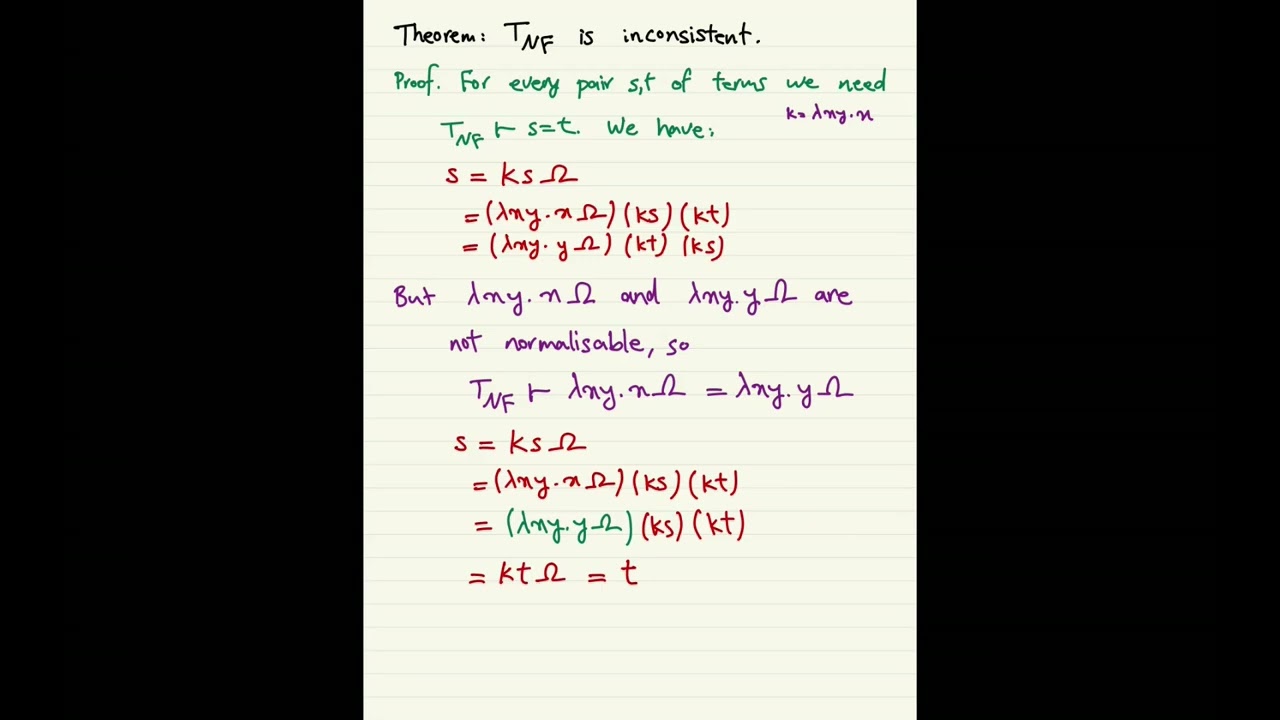 Theorem: T_NF is inconsistent.
Proof. For every pair s,t of terms we need
k = λxy.x
T_NF ⊢ s=t. We have:
s = ksΩ
= (λxy.xΩ)(ks)(kt)
= (λxy.yΩ)(kt)(ks)
But λxy.xΩ and λxy.yΩ are
not normalisable, so
T_NF ⊢ λxy.xΩ = λxy.yΩ
s = ksΩ
= (λxy.xΩ)(ks)(kt)
= (λxy.yΩ)(ks)(kt)
= ktΩ = t